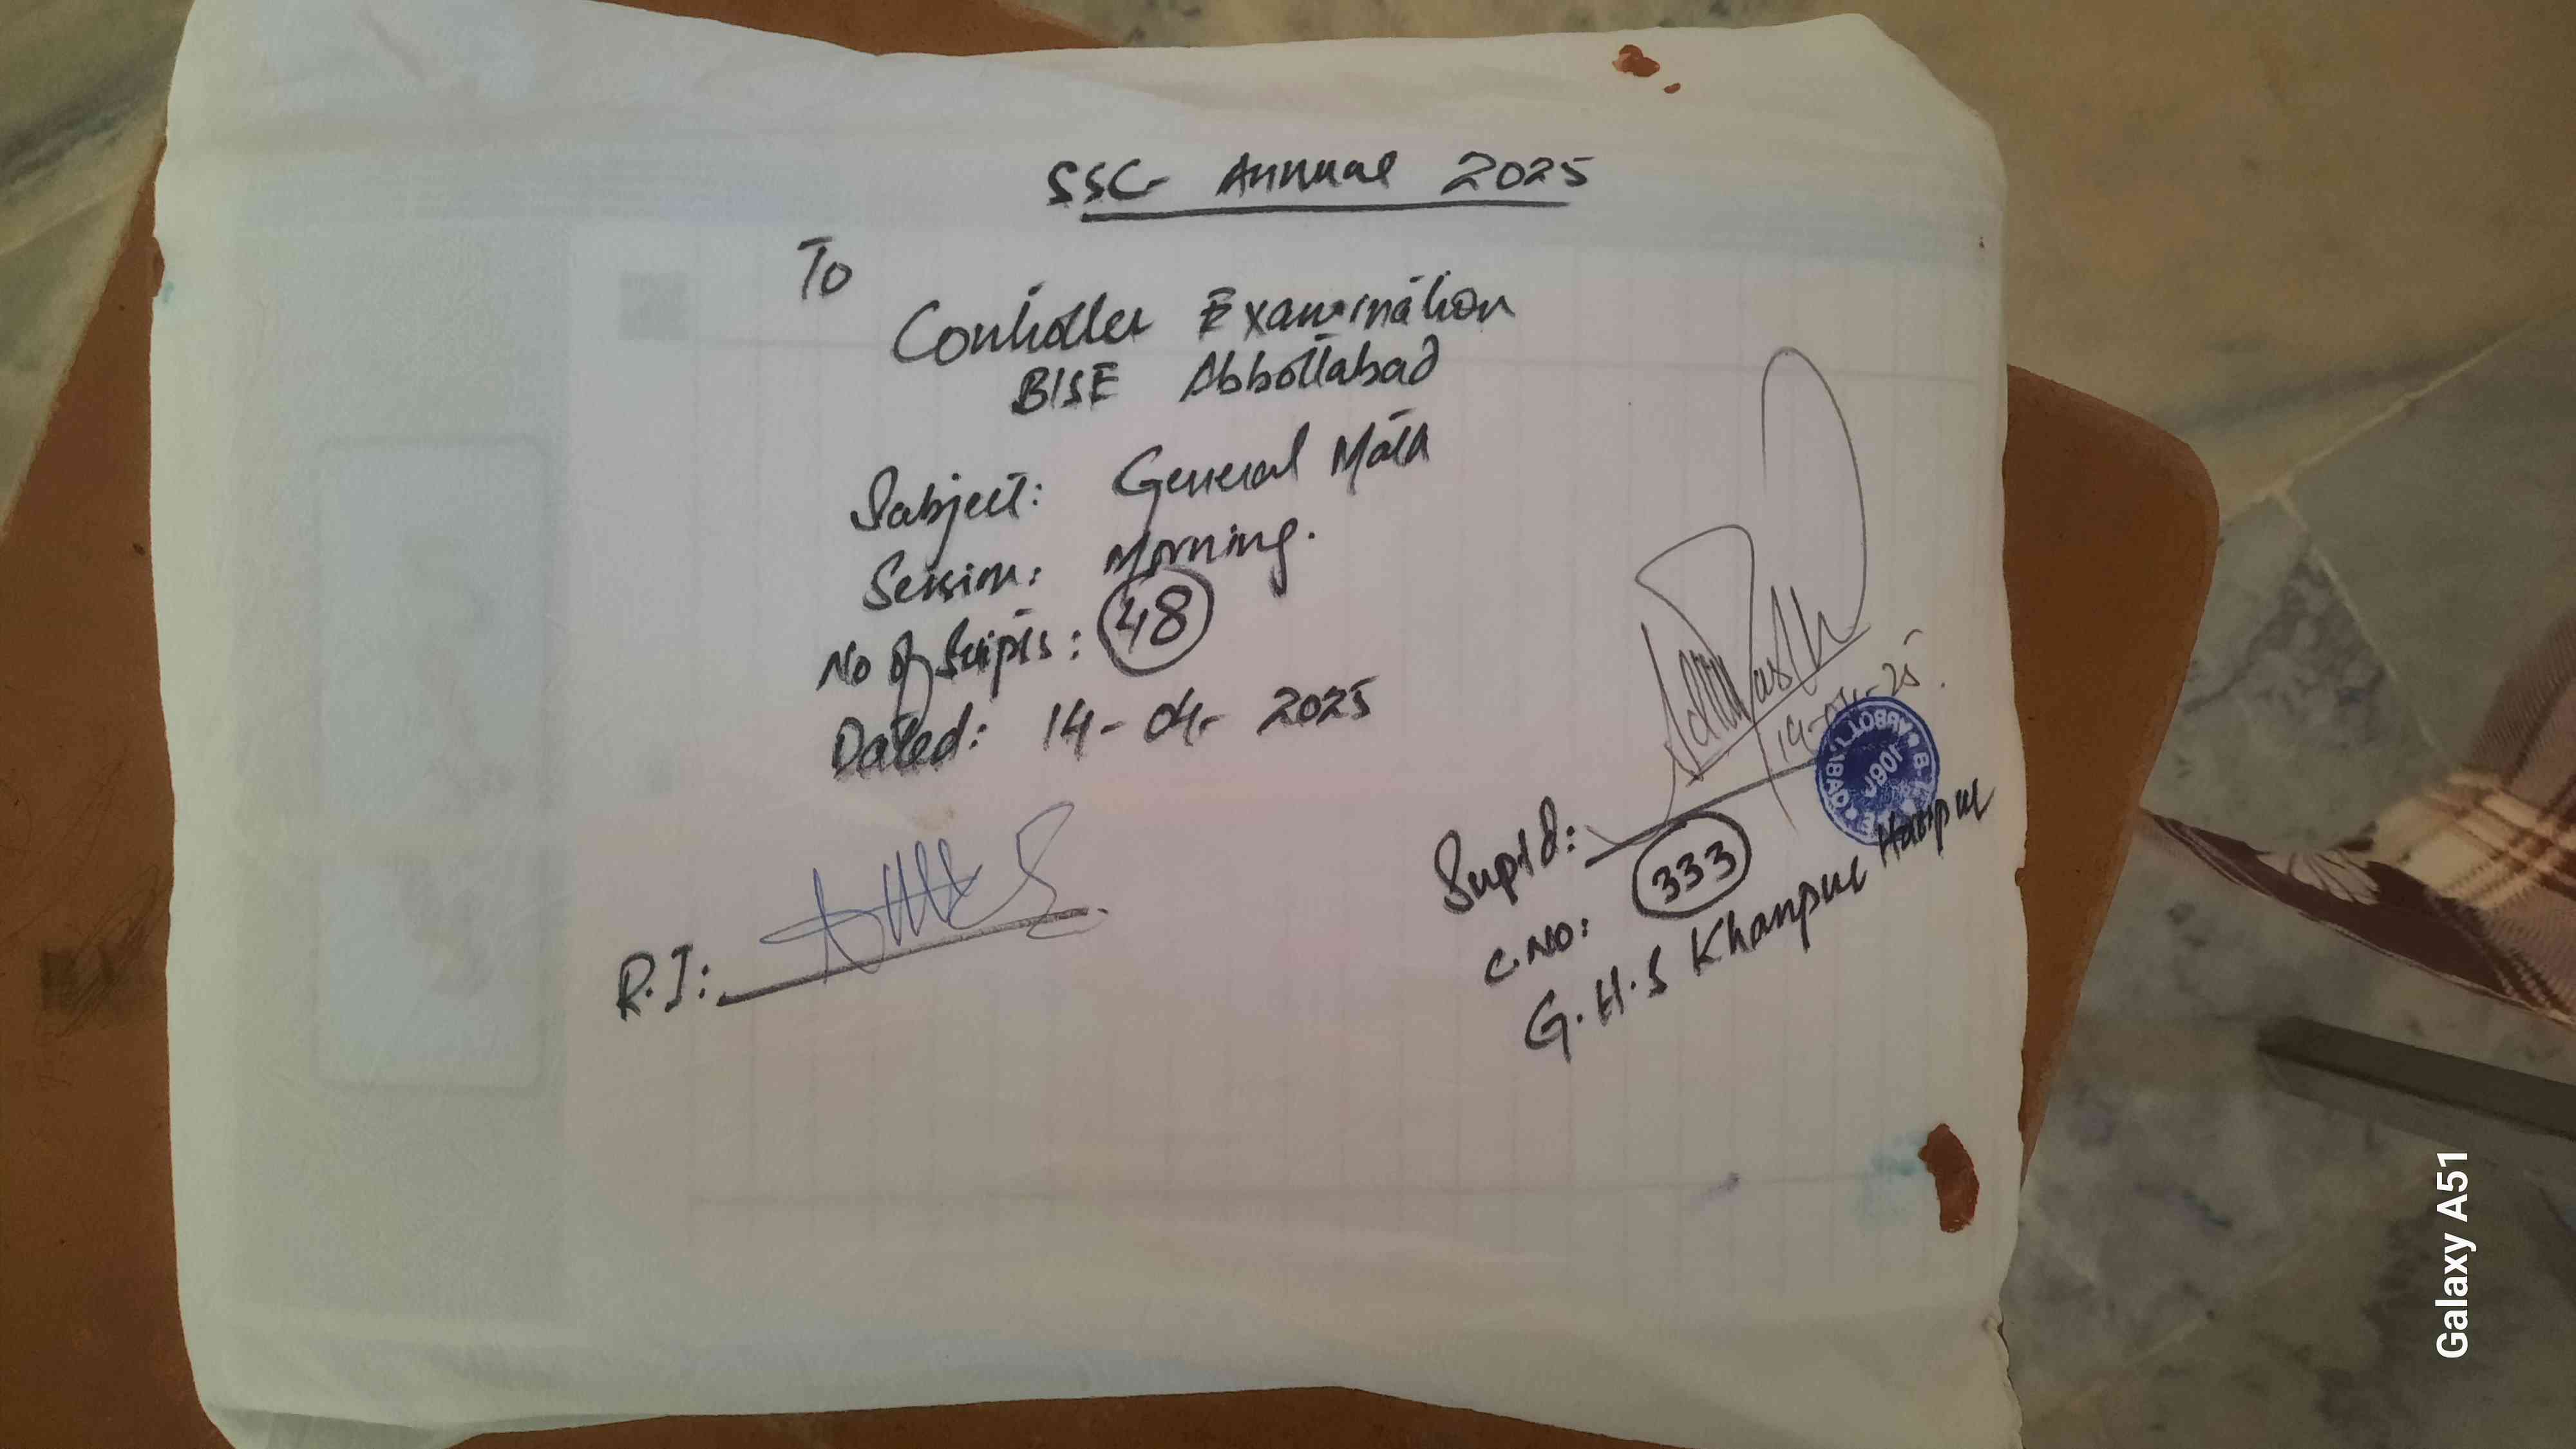 SSC Annual 2025
To
Controller Examination
BISE Abbottabad
Subject: General Math
Session: Morning.
No of Scripts: 48
Dated: 14-04-2025
R.I:
14-04-25
Suptd:
C.No: 333
G.H.S Khanpur Haripur
B. ABBOTTABAD
Galaxy A51